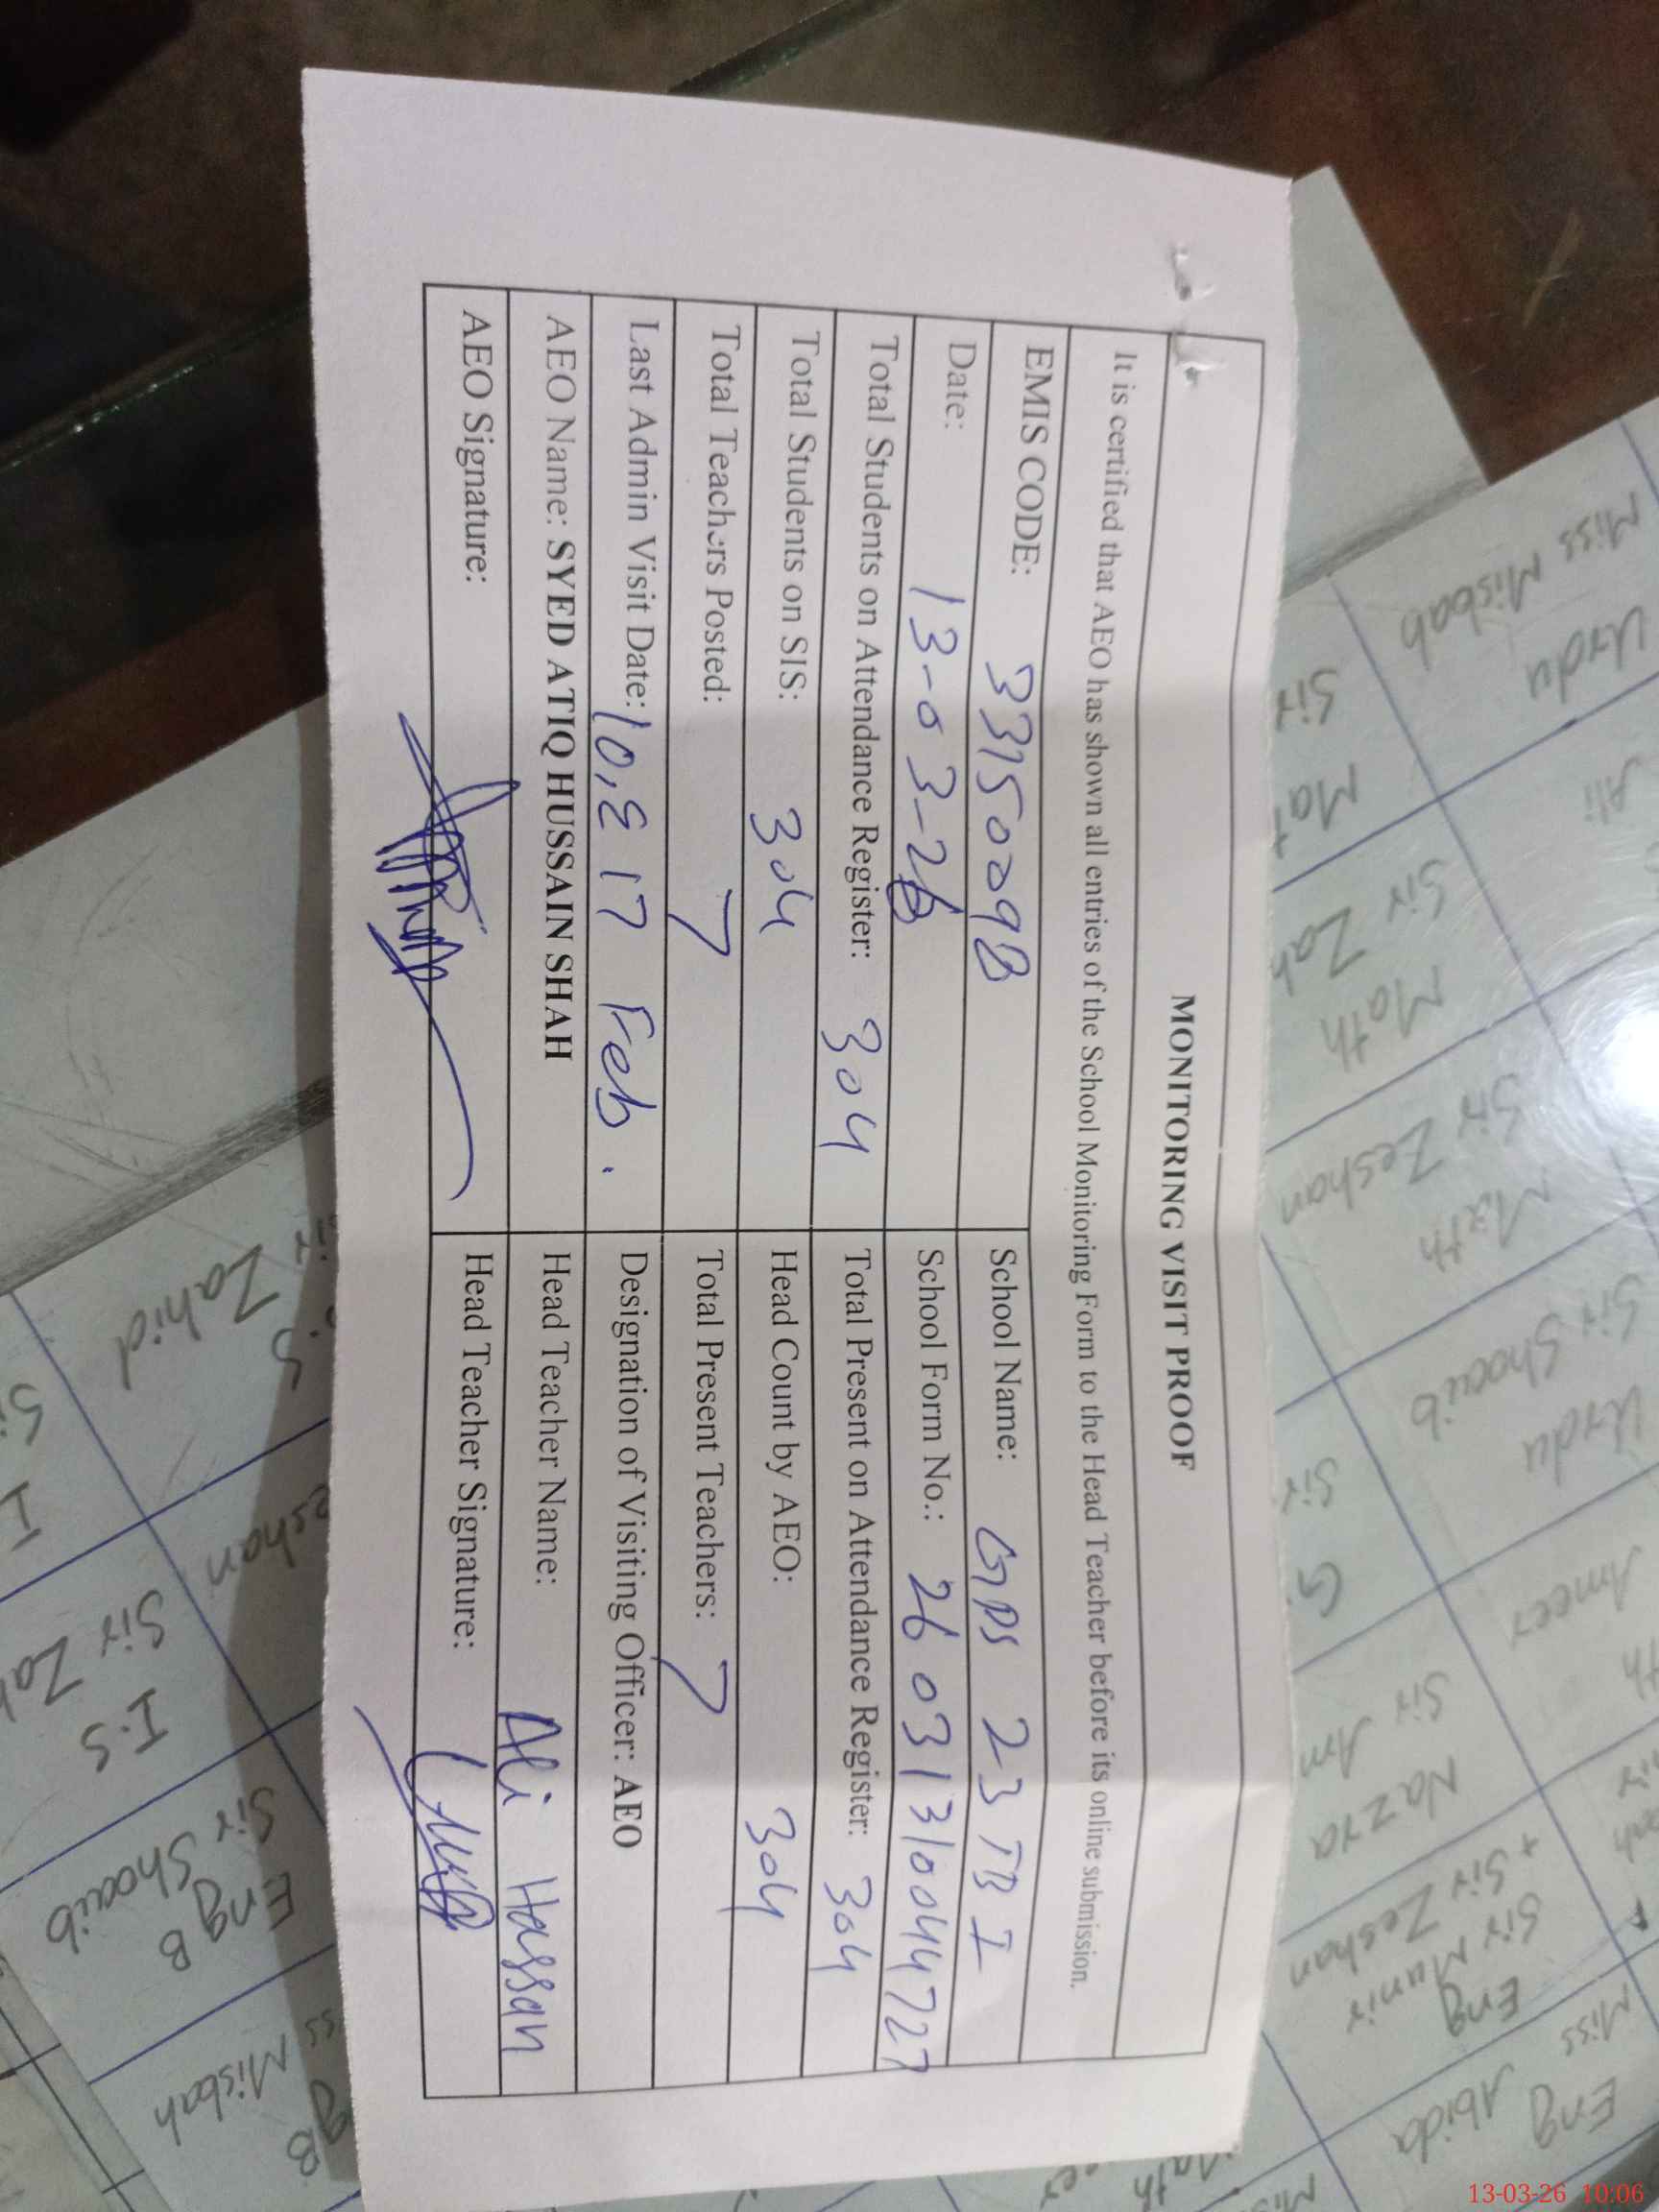 MONITORING VISIT PROOF
It is certified that AEO has shown all entries of the School Monitoring Form to the Head Teacher before its online submission.
EMIS CODE: 33150098
School Name: GPS 23 TB I
Date: 13-03-26
School Form No.: 26031310044727
Total Students on Attendance Register: 304
Total Present on Attendance Register: 304
Total Students on SIS: 304
Head Count by AEO: 304
Total Teachers Posted: 7
Total Present Teachers: 7
Last Admin Visit Date: 10, & 17 Feb.
Designation of Visiting Officer: AEO
AEO Name: SYED ATIQ HUSSAIN SHAH
Head Teacher Name: Ali Hassan
AEO Signature:
Head Teacher Signature:
Miss Misbah
Urdu
Sir
Ali
Sir Zah
Math
Sir Zeshan
Math
Sir Shoaib
Urdu
Sir
Ameer
Sir Am
Nazra
+ Sir Zeshan
Sir Munir
Eng
Miss Abida
Eng
Sir Zahid
S
eshan
Sir Zah
I.S
Sir Shoaib
Eng B
Misbah
13-03-26 10:06